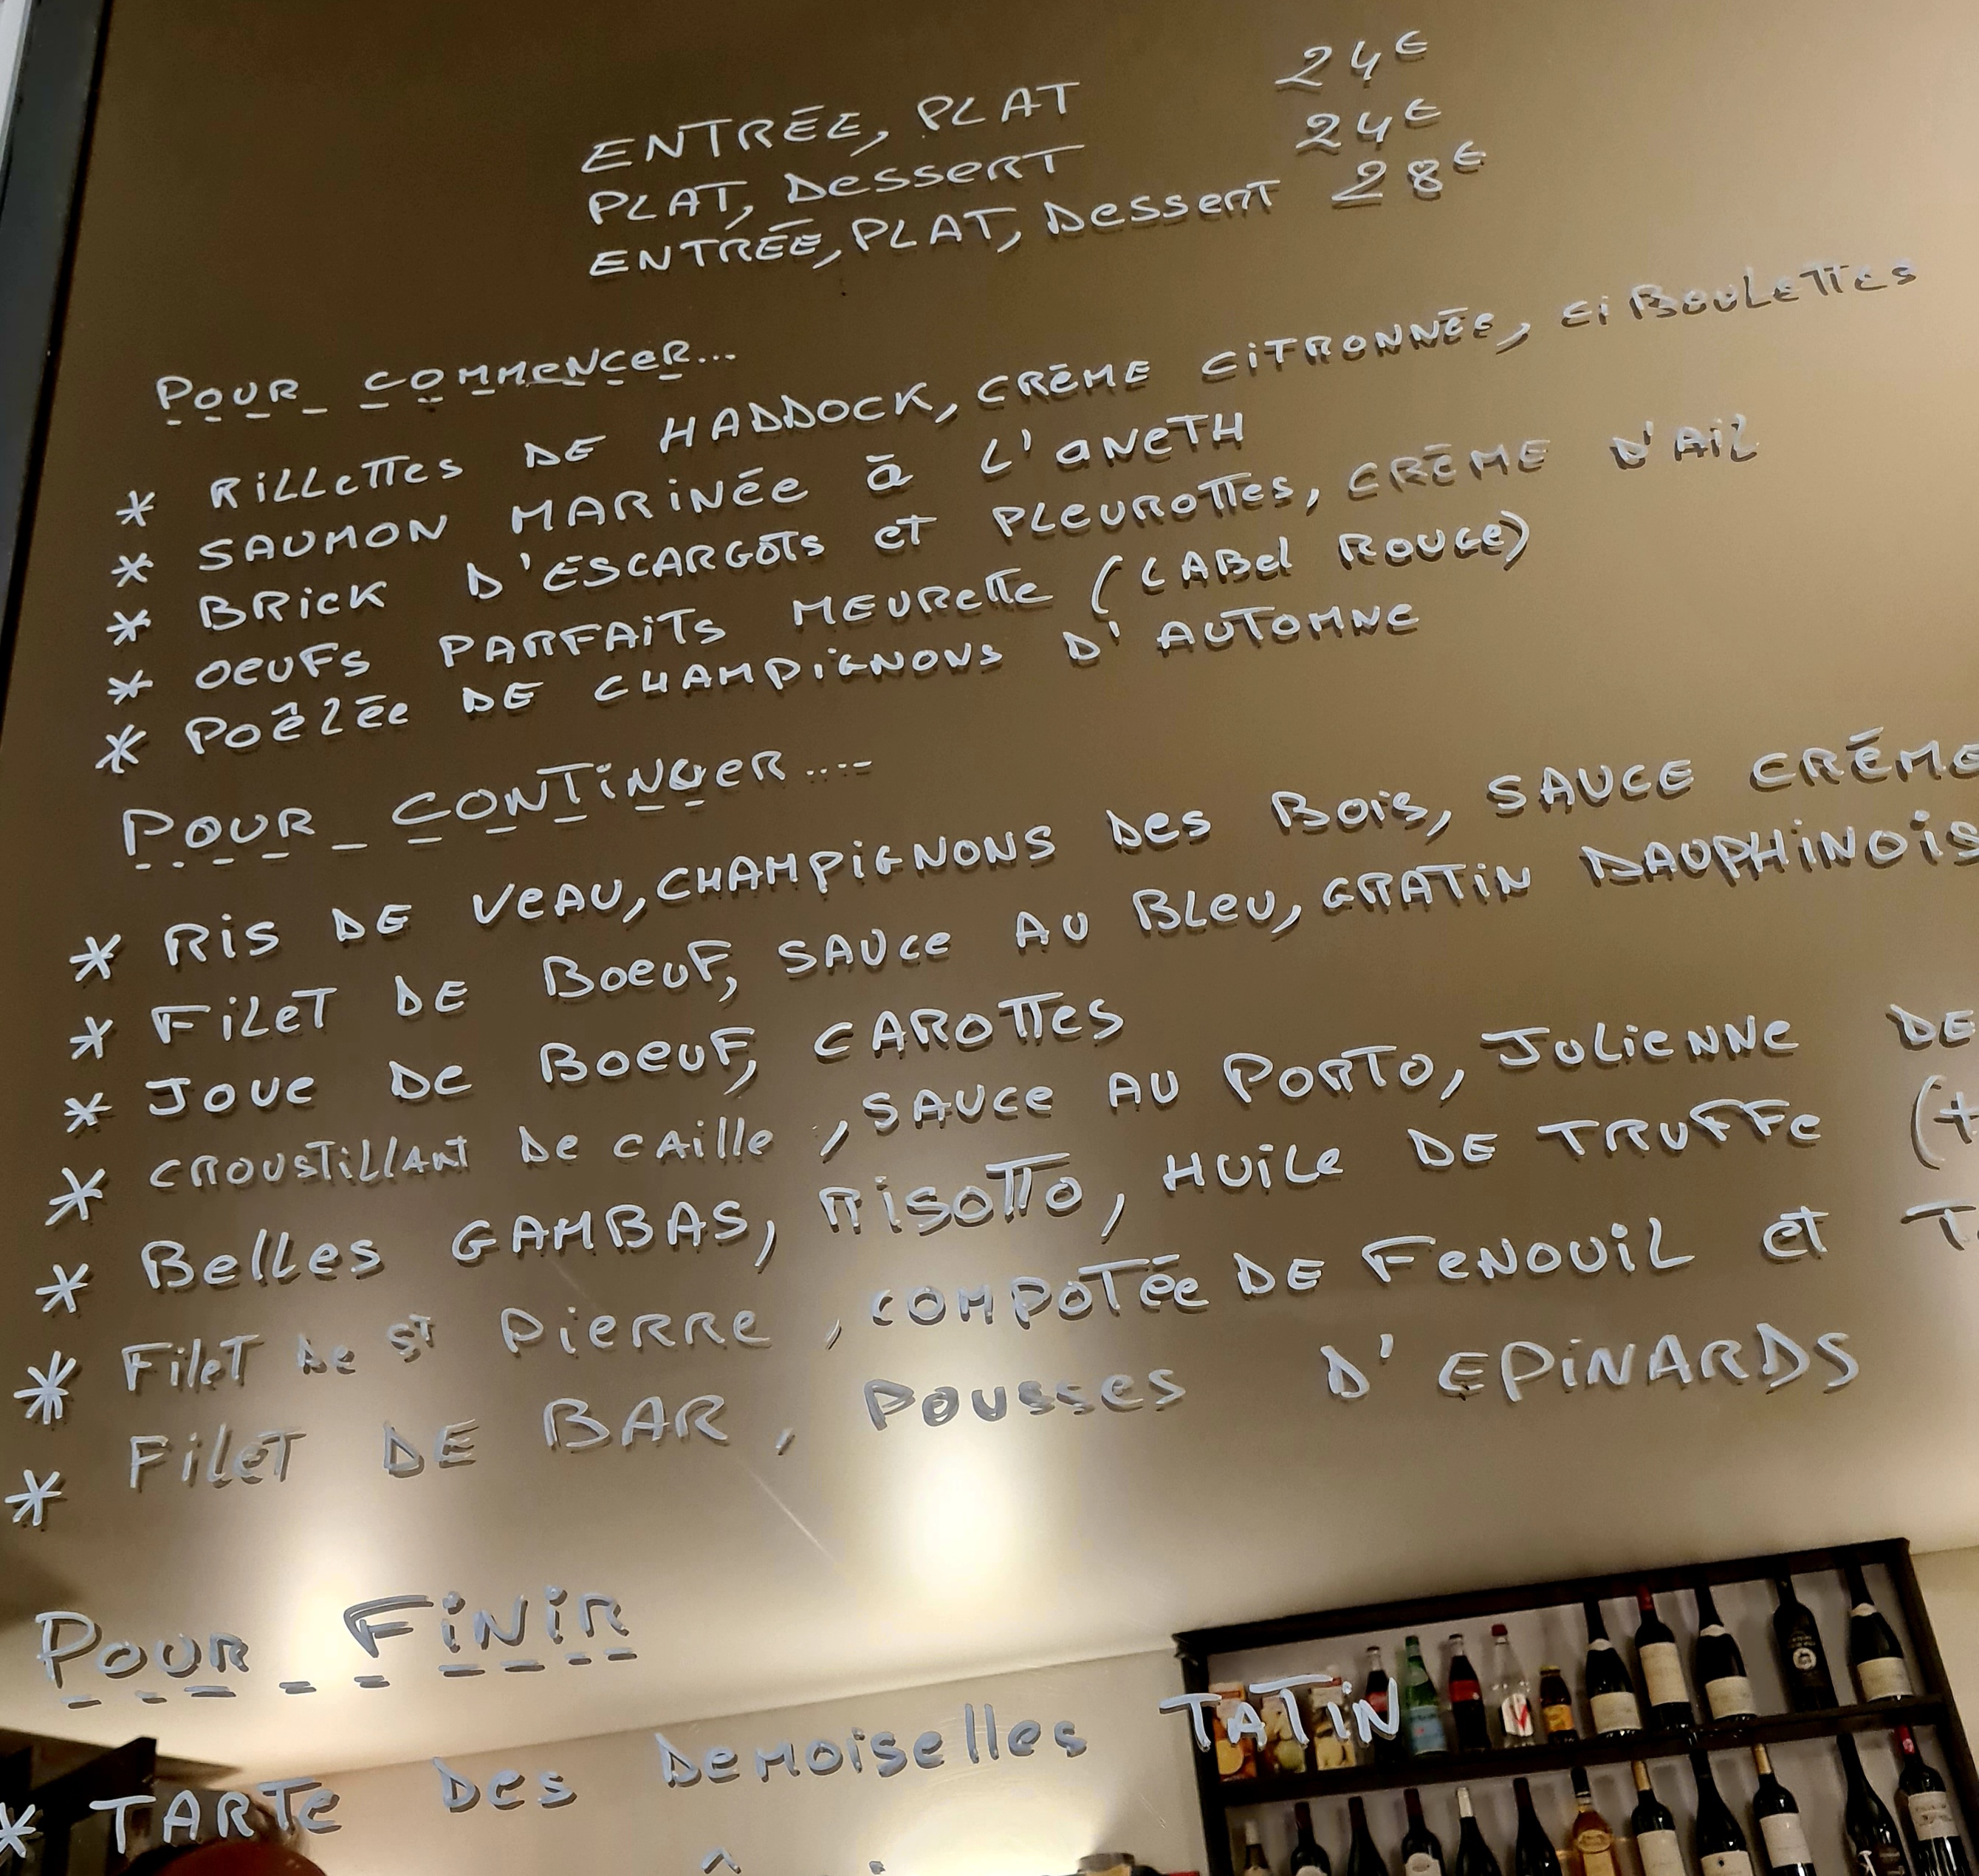 ENTRÉE, PLAT 24€
PLAT, DESSERT 24€
ENTRÉE, PLAT, DESSERT 28€
POUR COMMENCER...
* RILLETTES DE HADDOCK, CRÈME CITRONNÉE, CIBOULETTES
* SAUMON MARINÉE À L'ANETH
* BRICK D'ESCARGOTS ET PLEUROTTES, CRÈME D'AIL
* OEUFS PARFAITS MEURETTE (LABEL ROUGE)
* POÊLÉE DE CHAMPIGNONS D'AUTOMNE
POUR CONTINUER....
* RIS DE VEAU, CHAMPIGNONS DES BOIS, SAUCE CRÈME
* FILET DE BOEUF, SAUCE AU BLEU, GRATIN DAUPHINOIS
* JOUE DE BOEUF, CAROTTES
* CROUSTILLANT DE CAILLE, SAUCE AU PORTO, JULIENNE DE
* BELLES GAMBAS, RISOTTO, HUILE DE TRUFFE (+
* FILET DE ST PIERRE, COMPOTÉE DE FENOUIL ET
* FILET DE BAR, POUSSES D'EPINARDS
POUR FINIR
* TARTE DES DEMOISELLES TATIN